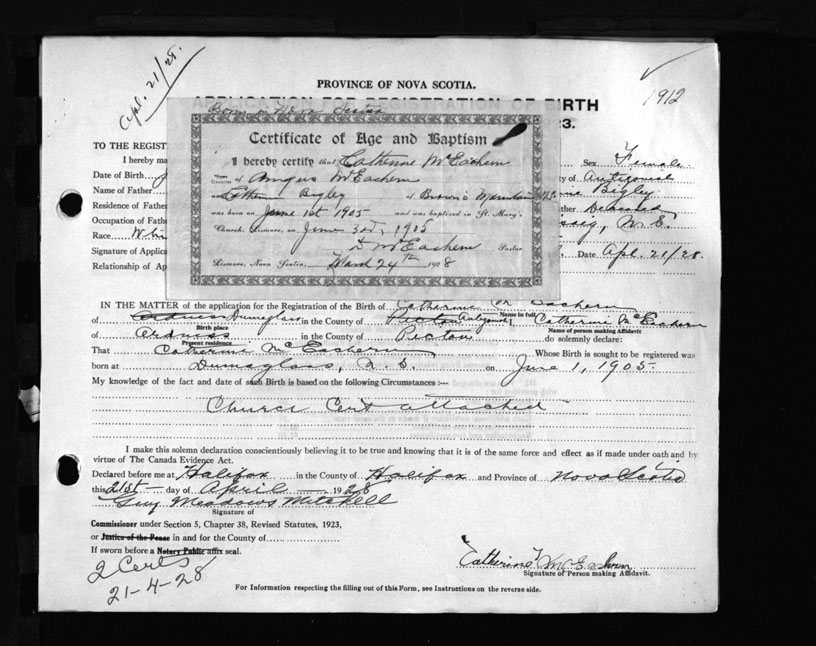 Apl. 21/28.
PROVINCE OF NOVA SCOTIA.
1912
APPLICATION FOR REGISTRATION OF BIRTH
Born in Nova Scotia
Certificate of Age and Baptism
I hereby certify that Catherine McEachern
of Angus McEachern
and Catherine Bigley of Brown's Mountain N.S.
was born on June 1st 1905 and was baptized in St. Mary's
Church, Lismore, on June 3rd, 1905
D McEachern Pastor
Lismore, Nova Scotia, March 24th 1928
TO THE REGIST
I hereby ma
Date of Birth J
Name of Father
Residence of Fath
Occupation of Fath
Race Whi
Signature of Applica
Relationship of Ap
Sex Female
ty of Antigonish
Bigley
ther Deceased
N.S.
Date Apl. 21/28.
IN THE MATTER of the application for the Registration of the Birth of Catherine Mc Eachern
of Ardness Dunmaglass in the County of Pictou Antigonish Catherine McEachern
Birth place
Name in full
Person making Affidavit
of Ardness in the County of Pictou do solemnly declare:
Present residence
That Catherine McEachern Whose Birth is sought to be registered was
born at Dunmaglass, N.S. on June 1, 1905.
My knowledge of the fact and date of such Birth is based on the following Circumstances :—
Church Cert attached
I make this solemn declaration conscientiously believing it to be true and knowing that it is of the same force and effect as if made under oath and by
virtue of The Canada Evidence Act.
Declared before me at Halifax in the County of Halifax and Province of Nova Scotia
this 21st day of April 1928
Guy Meadows Mitchell
Signature of
Commissioner under Section 5, Chapter 38, Revised Statutes, 1923,
or Justice of the Peace in and for the County of
If sworn before a Notary Public affix seal.
2 Certs
21-4-28
Catherine McEachern
Signature of Person making Affidavit.
For Information respecting the filling out of this Form, see Instructions on the reverse side.